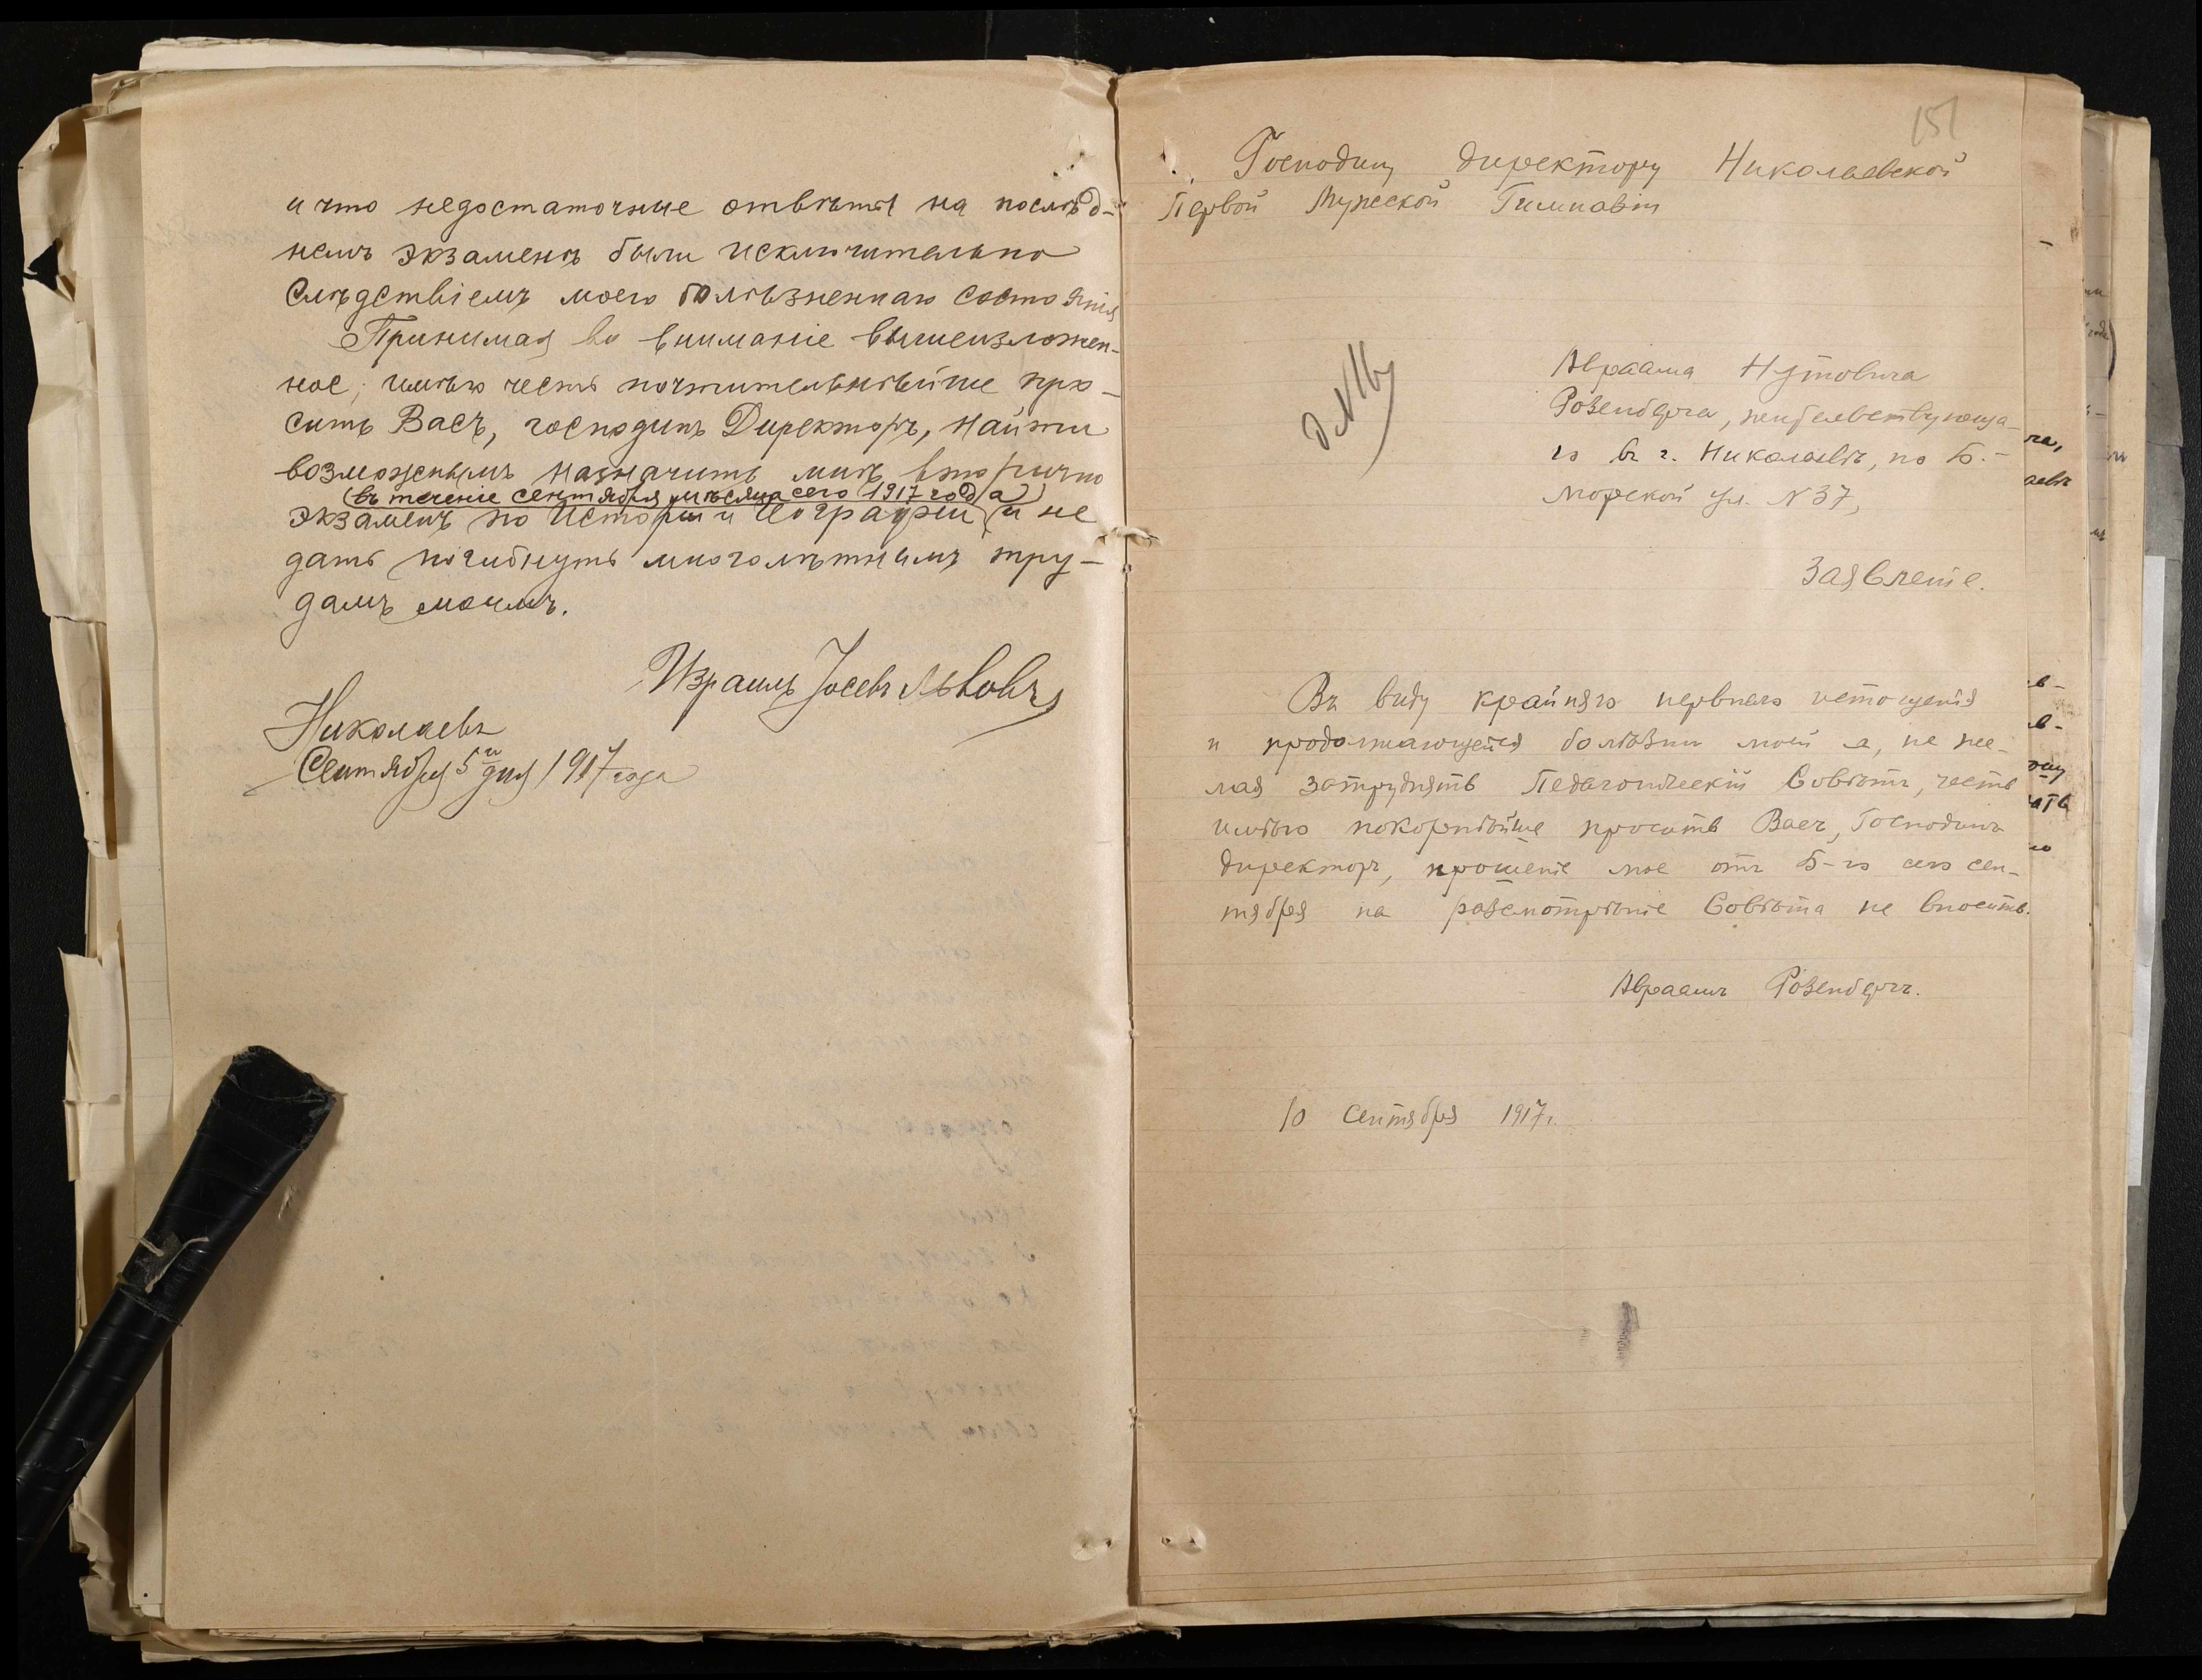 и что недостаточные отвѣты на послѣд-
немъ экзаменѣ были исключительно
слѣдствіемъ моего болѣзненнаго состоянія
Принимая во вниманіе вышеизложен-
ное, имѣю честь почтительнѣйше про-
сить Васъ, господинъ Директоръ, найти
возможнымъ назначить мнѣ вторично
(въ теченіе сентября мѣсяца сего 1917 года)
экзаменъ по Исторіи и Географіи и не
дать погибнуть многолѣтнимъ тру-
дамъ моимъ.
Израиль Іосевъ Львовъ
Николаевъ
Сентября 5го дня 1917 года
151
Господину директору Николаевской
Первой Мужской Гимназіи
Авраама Нутовича
Розенберга, жительствующа-
го въ г. Николаевѣ, по Б.-
Морской ул. N 37,
Заявленіе.
Въ виду крайняго нервнаго истощенія
и продолжающейся болѣзни моей я, не же-
лая затруднять Педагогическій Совѣтъ, честь
имѣю покорнѣйше просить Васъ, Господинъ
директоръ, прошеніе мое отъ 5-го сего сен-
тября на разсмотрѣніе Совѣта не вносить.
Авраамъ Розенбергъ.
10 Сентября 1917 г.